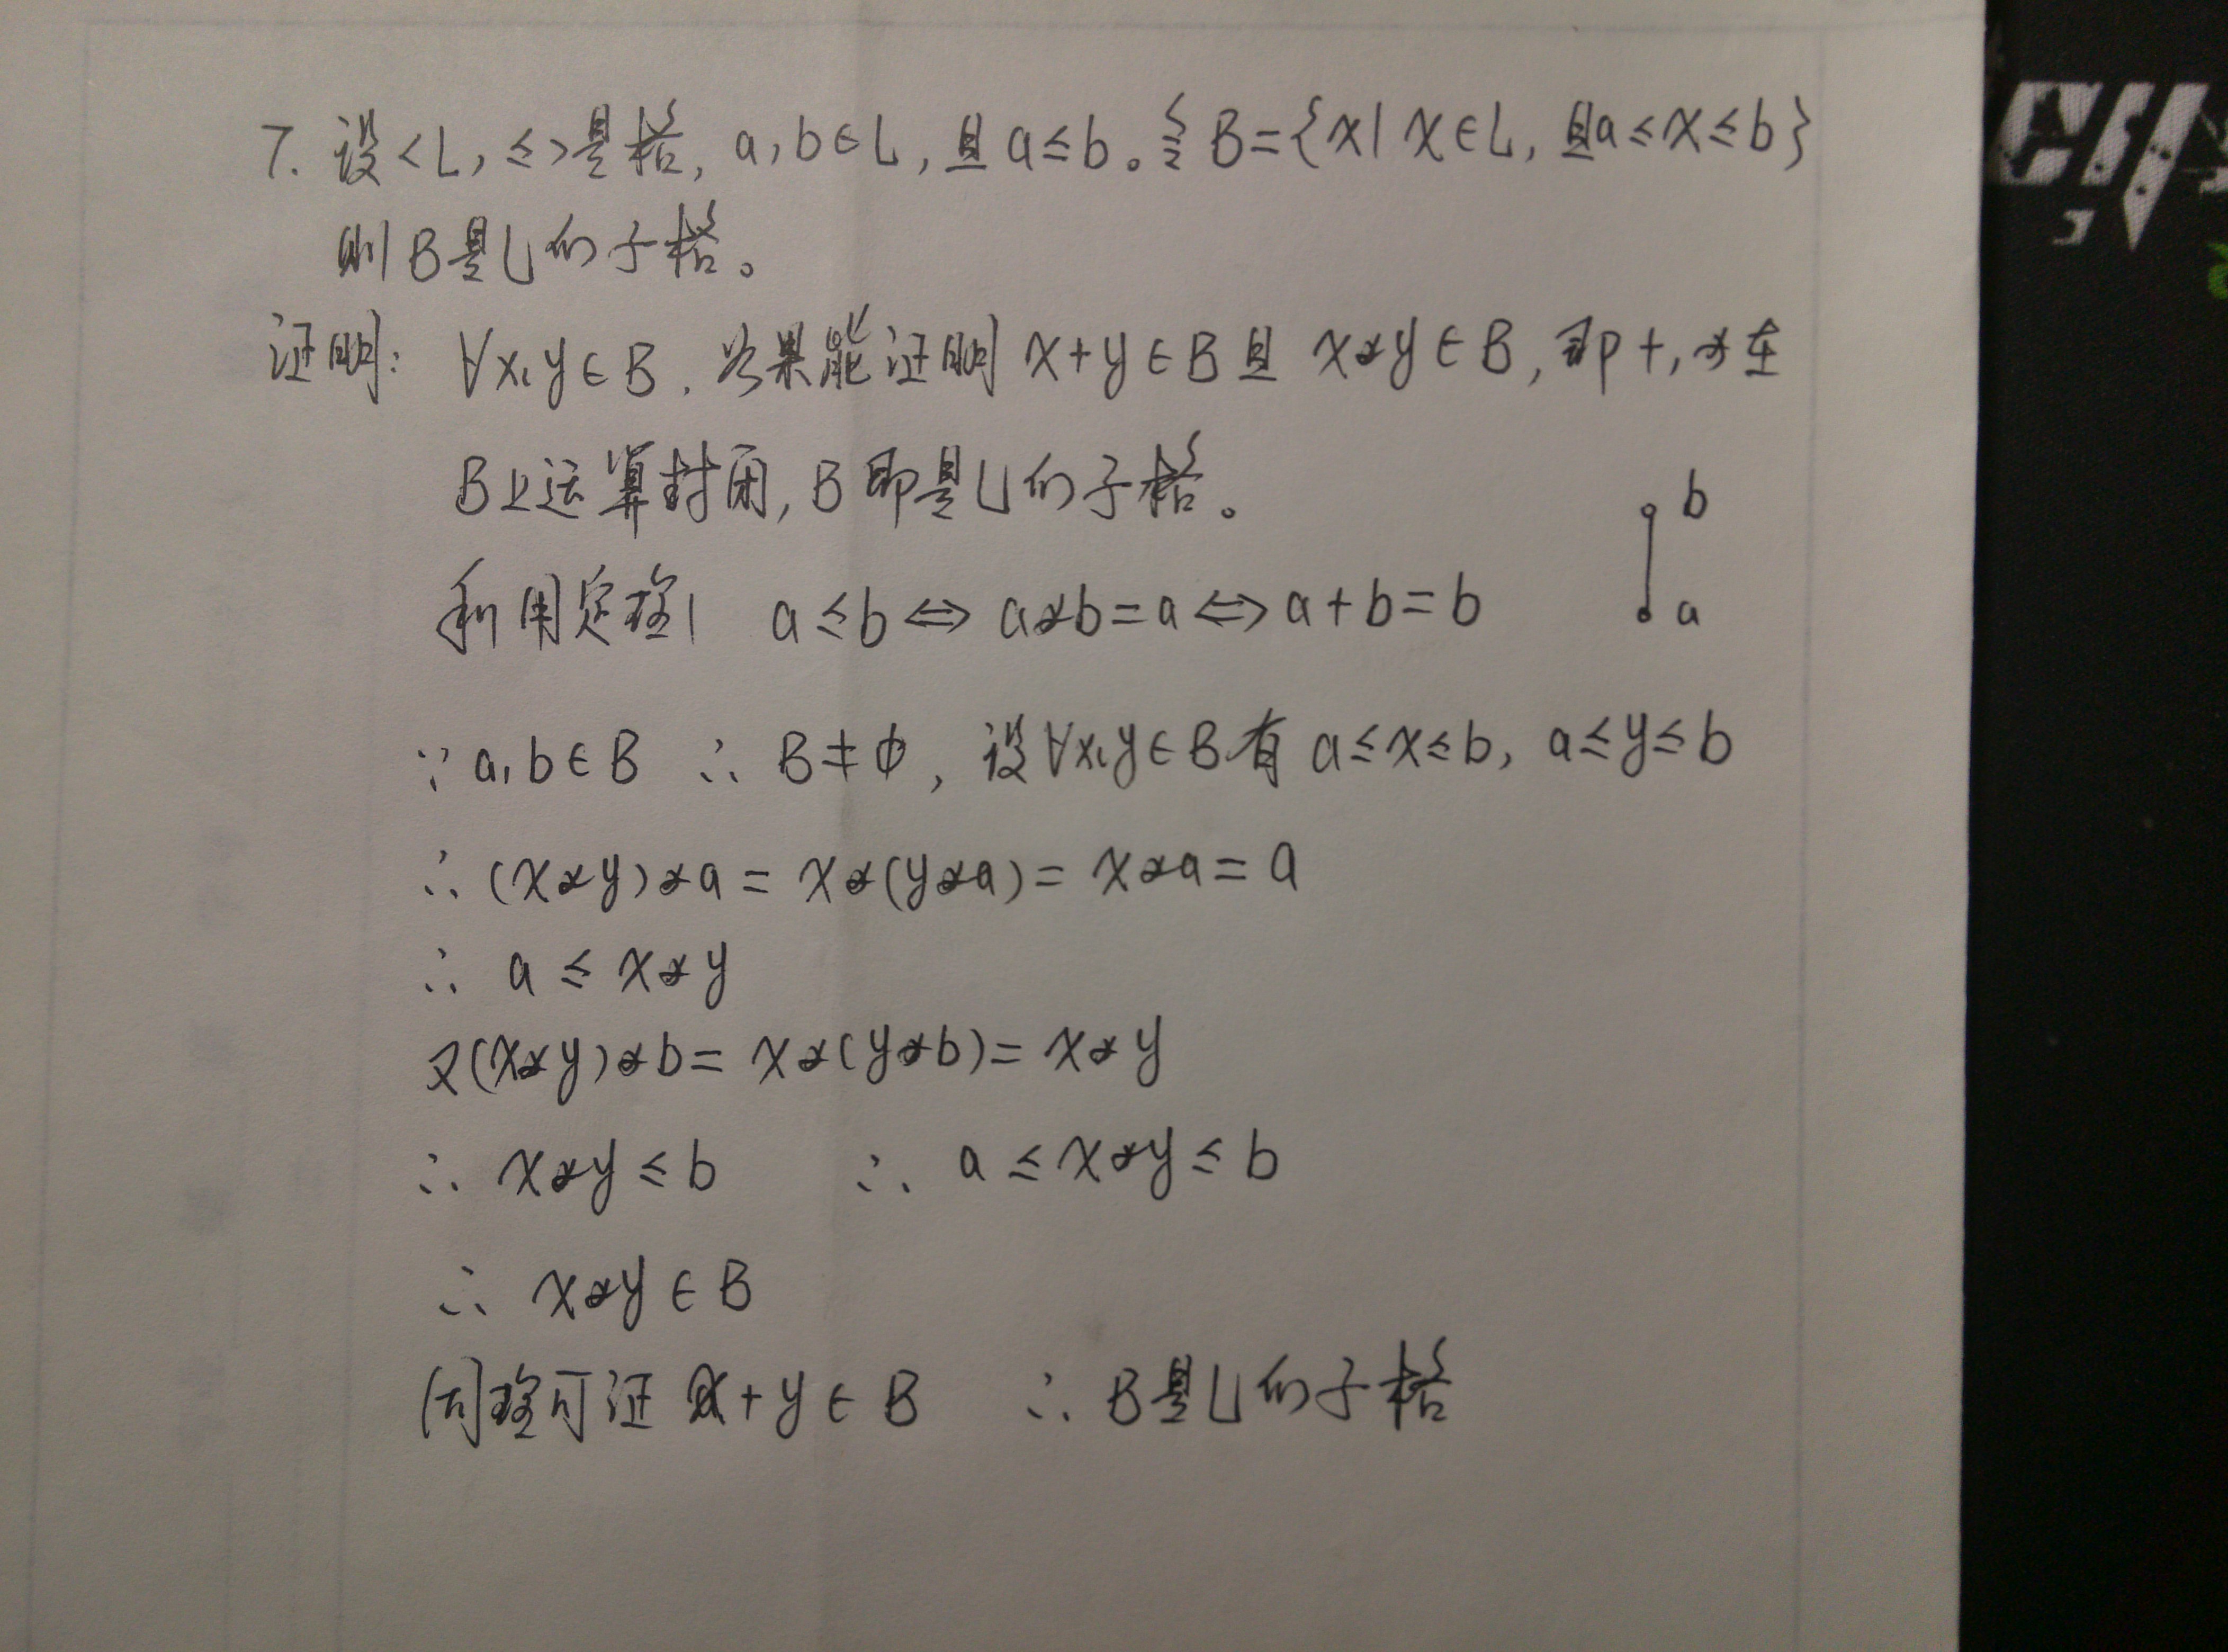 7. 设<L, ≤>是格, a,b∈L, 且a≤b。 B={x| x∈L, 且a≤x≤b}
则B是L的子格。
证明: ∀x,y∈B. 如果能证明 x+y∈B且 x*y∈B, 即+,*在
B上运算封闭, B即是L的子格。
b
利用定理1 a≤b⇔a*b=a⇔a+b=b
a
∵a,b∈B ∴ B≠φ, 设∀x,y∈B有 a≤x≤b, a≤y≤b
∴(x*y)*a = x*(y*a) = x*a = a
∴ a ≤ x*y
又(x*y)*b = x*(y*b) = x*y
∴ x*y≤b ∴ a≤x*y≤b
∴ x*y∈B
同理可证 x+y∈B ∴ B是L的子格